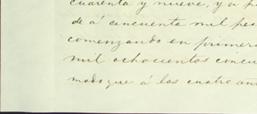 cuarenta y nueve, y a
de á cincuenta mil pes
comenzando en primer
mil ochocientos
modo que á los cuatro añ